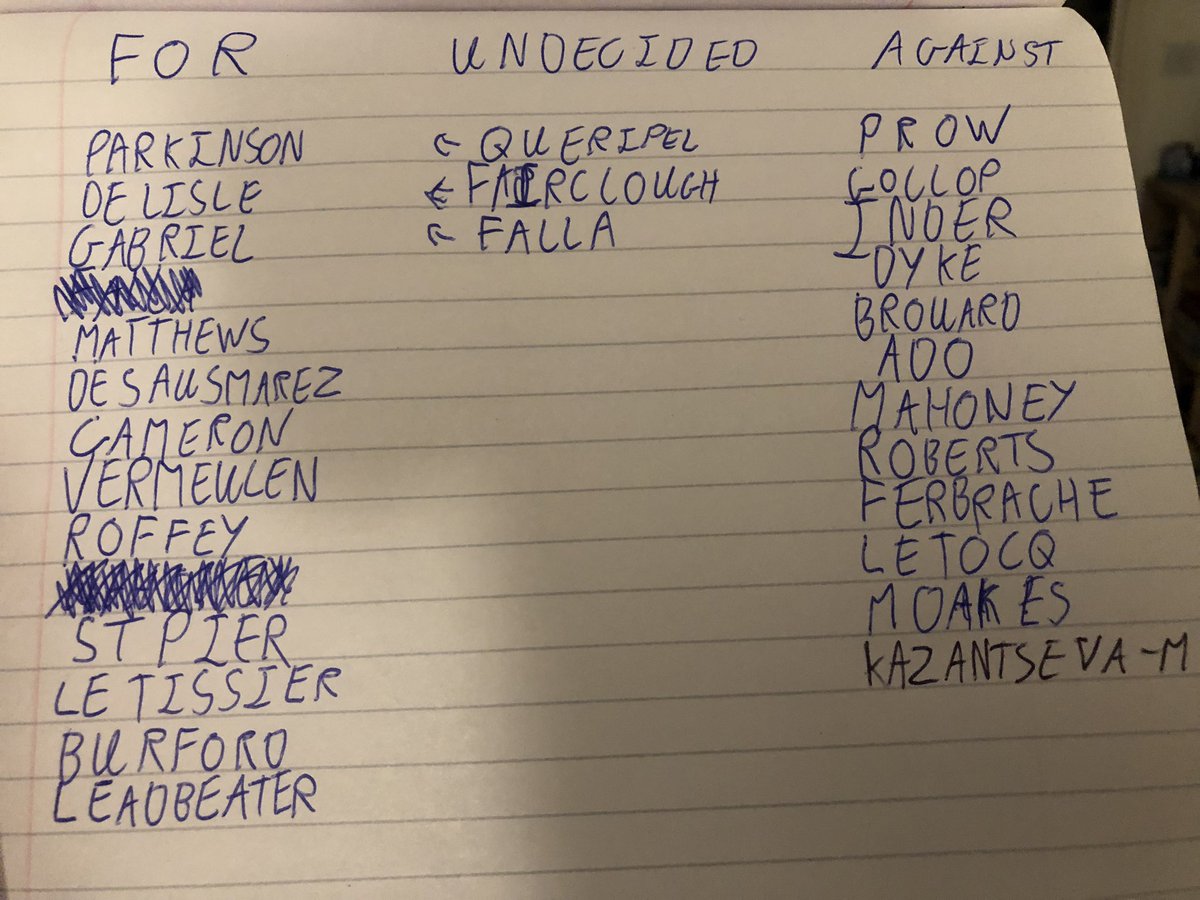 FOR UNDECIDED AGAINST
PARKINSON
DE LISLE
GABRIEL
MATTHEWS
DE SAUSMAREZ
CAMERON
VERMEULEN
ROFFEY
ST PIER
LE TISSIER
BURFORD
LEADBEATER
← QUERIPEL
← FAIRCLOUGH
← FALLA
PROW
GOLLOP
INDER
DYKE
BROUARD
ADO
MAHONEY
ROBERTS
FERBRACHE
LE TOCQ
MOAKES
KAZANTSEVA-M